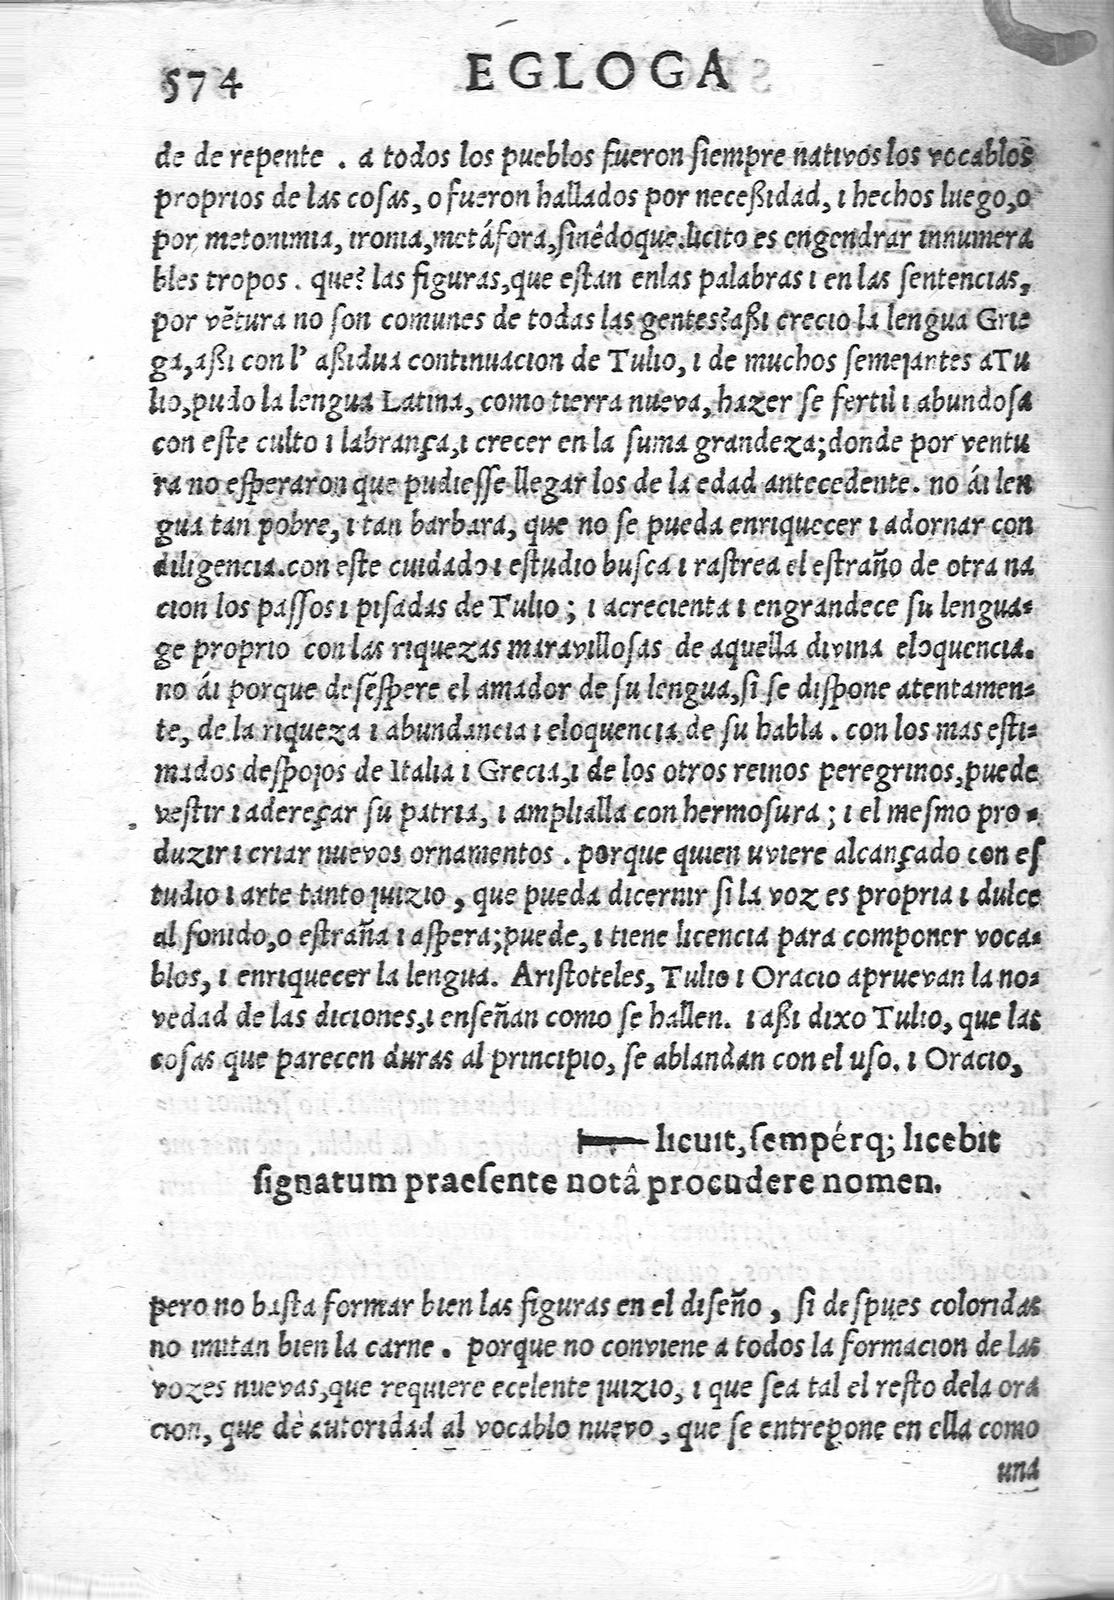 574 EGLOGA
de de repente . a todos los pueblos fueron ſiempre nativos los vocablos
proprios de las coſas, o fueron hallados por neceßidad, i hechos luego, o
por metonimia, ironia, metáfora, ſinédoque. licito es engendrar innumera
bles tropos . que? las figuras, que eſtan enlas palabras i en las ſentencias,
por vẽtura no ſon comunes de todas las gentes? aßi crecio la lengua Grie
ga, aßi con l' aßidua continuacion de Tulio, i de muchos ſemejantes aTu
lio, pudo la lengua Latina, como tierra nueva, hazer ſe fertil i abundoſa
con eſte culto i labrança, i crecer en la ſuma grandeza; donde por ventu
ra no eſperaron que pudieſſe llegar los de la edad antecedente. no ái len
gua tan pobre, i tan barbara, que no ſe pueda enriquecer i adornar con
diligencia. con eſte cuidado i eſtudio buſca i raſtrea el eſtraño de otra na
cion los paſſos i piſadas de Tulio ; i acrecienta i engrandece ſu lengua-
ge proprio con las riquezas maravilloſas de aquella divina eloquencia.
no ái porque deſeſpere el amador de ſu lengua, ſi ſe diſpone atentamen-
te, de la riqueza i abundancia i eloquencia de ſu habla . con los mas eſti-
mados deſpojos de Italia i Grecia, i de los otros reinos peregrinos, puede
veſtir i adereçar ſu patria, i amplialla con hermoſura ; i el meſmo pro-
duzir i criar nuevos ornamentos . porque quien uviere alcançado con eſ
tudio i arte tanto juizio, que pueda dicernir ſi la voz es propria i dulce
al ſonido, o eſtraña i aſpera; puede, i tiene licencia para componer voca-
blos, i enriquecer la lengua. Ariſtoteles, Tulio i Oracio apruevan la no-
vedad de las diciones, i enſeñan como ſe hallen. i aßi dixo Tulio, que las
coſas que parecen duras al principio, ſe ablandan con el uſo. i Oracio,
—— licuit, ſempérq; licebit
ſignatum praeſente notâ procudere nomen.
pero no baſta formar bien las figuras en el diſeño , ſi deſpues coloridas
no imitan bien la carne . porque no conviene a todos la formacion de las
vozes nuevas, que requiere ecelente juizio, i que ſea tal el reſto dela ora
cion, que dè autoridad al vocablo nuevo, que ſe entrepone en ella como
una